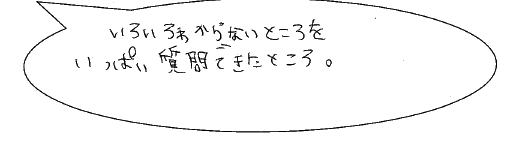 いろいろわからないところを
いっぱい質問できたところ。